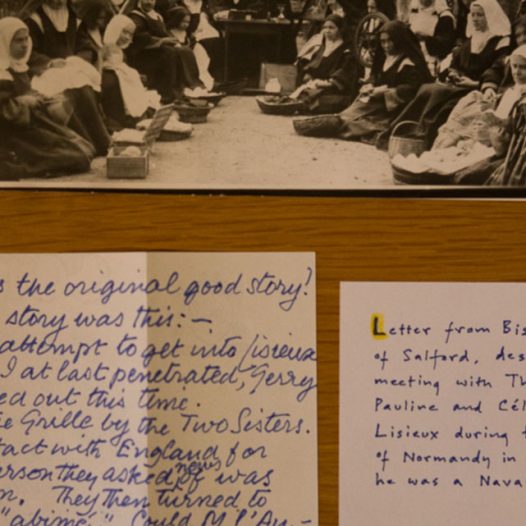 s the original good story?
story was this:—
attempt to get into Lisieux
I at last penetrated, Gerry
ed out this time.
e Grille by the Two Sisters.
tact with England for
erson they asked news of was
n. They then turned to
"abimé". Could M l'Au-
Letter from Bis
of Salford, des
meeting with Th
Pauline and Cél
Lisieux during t
of Normandy in
he was a Nava